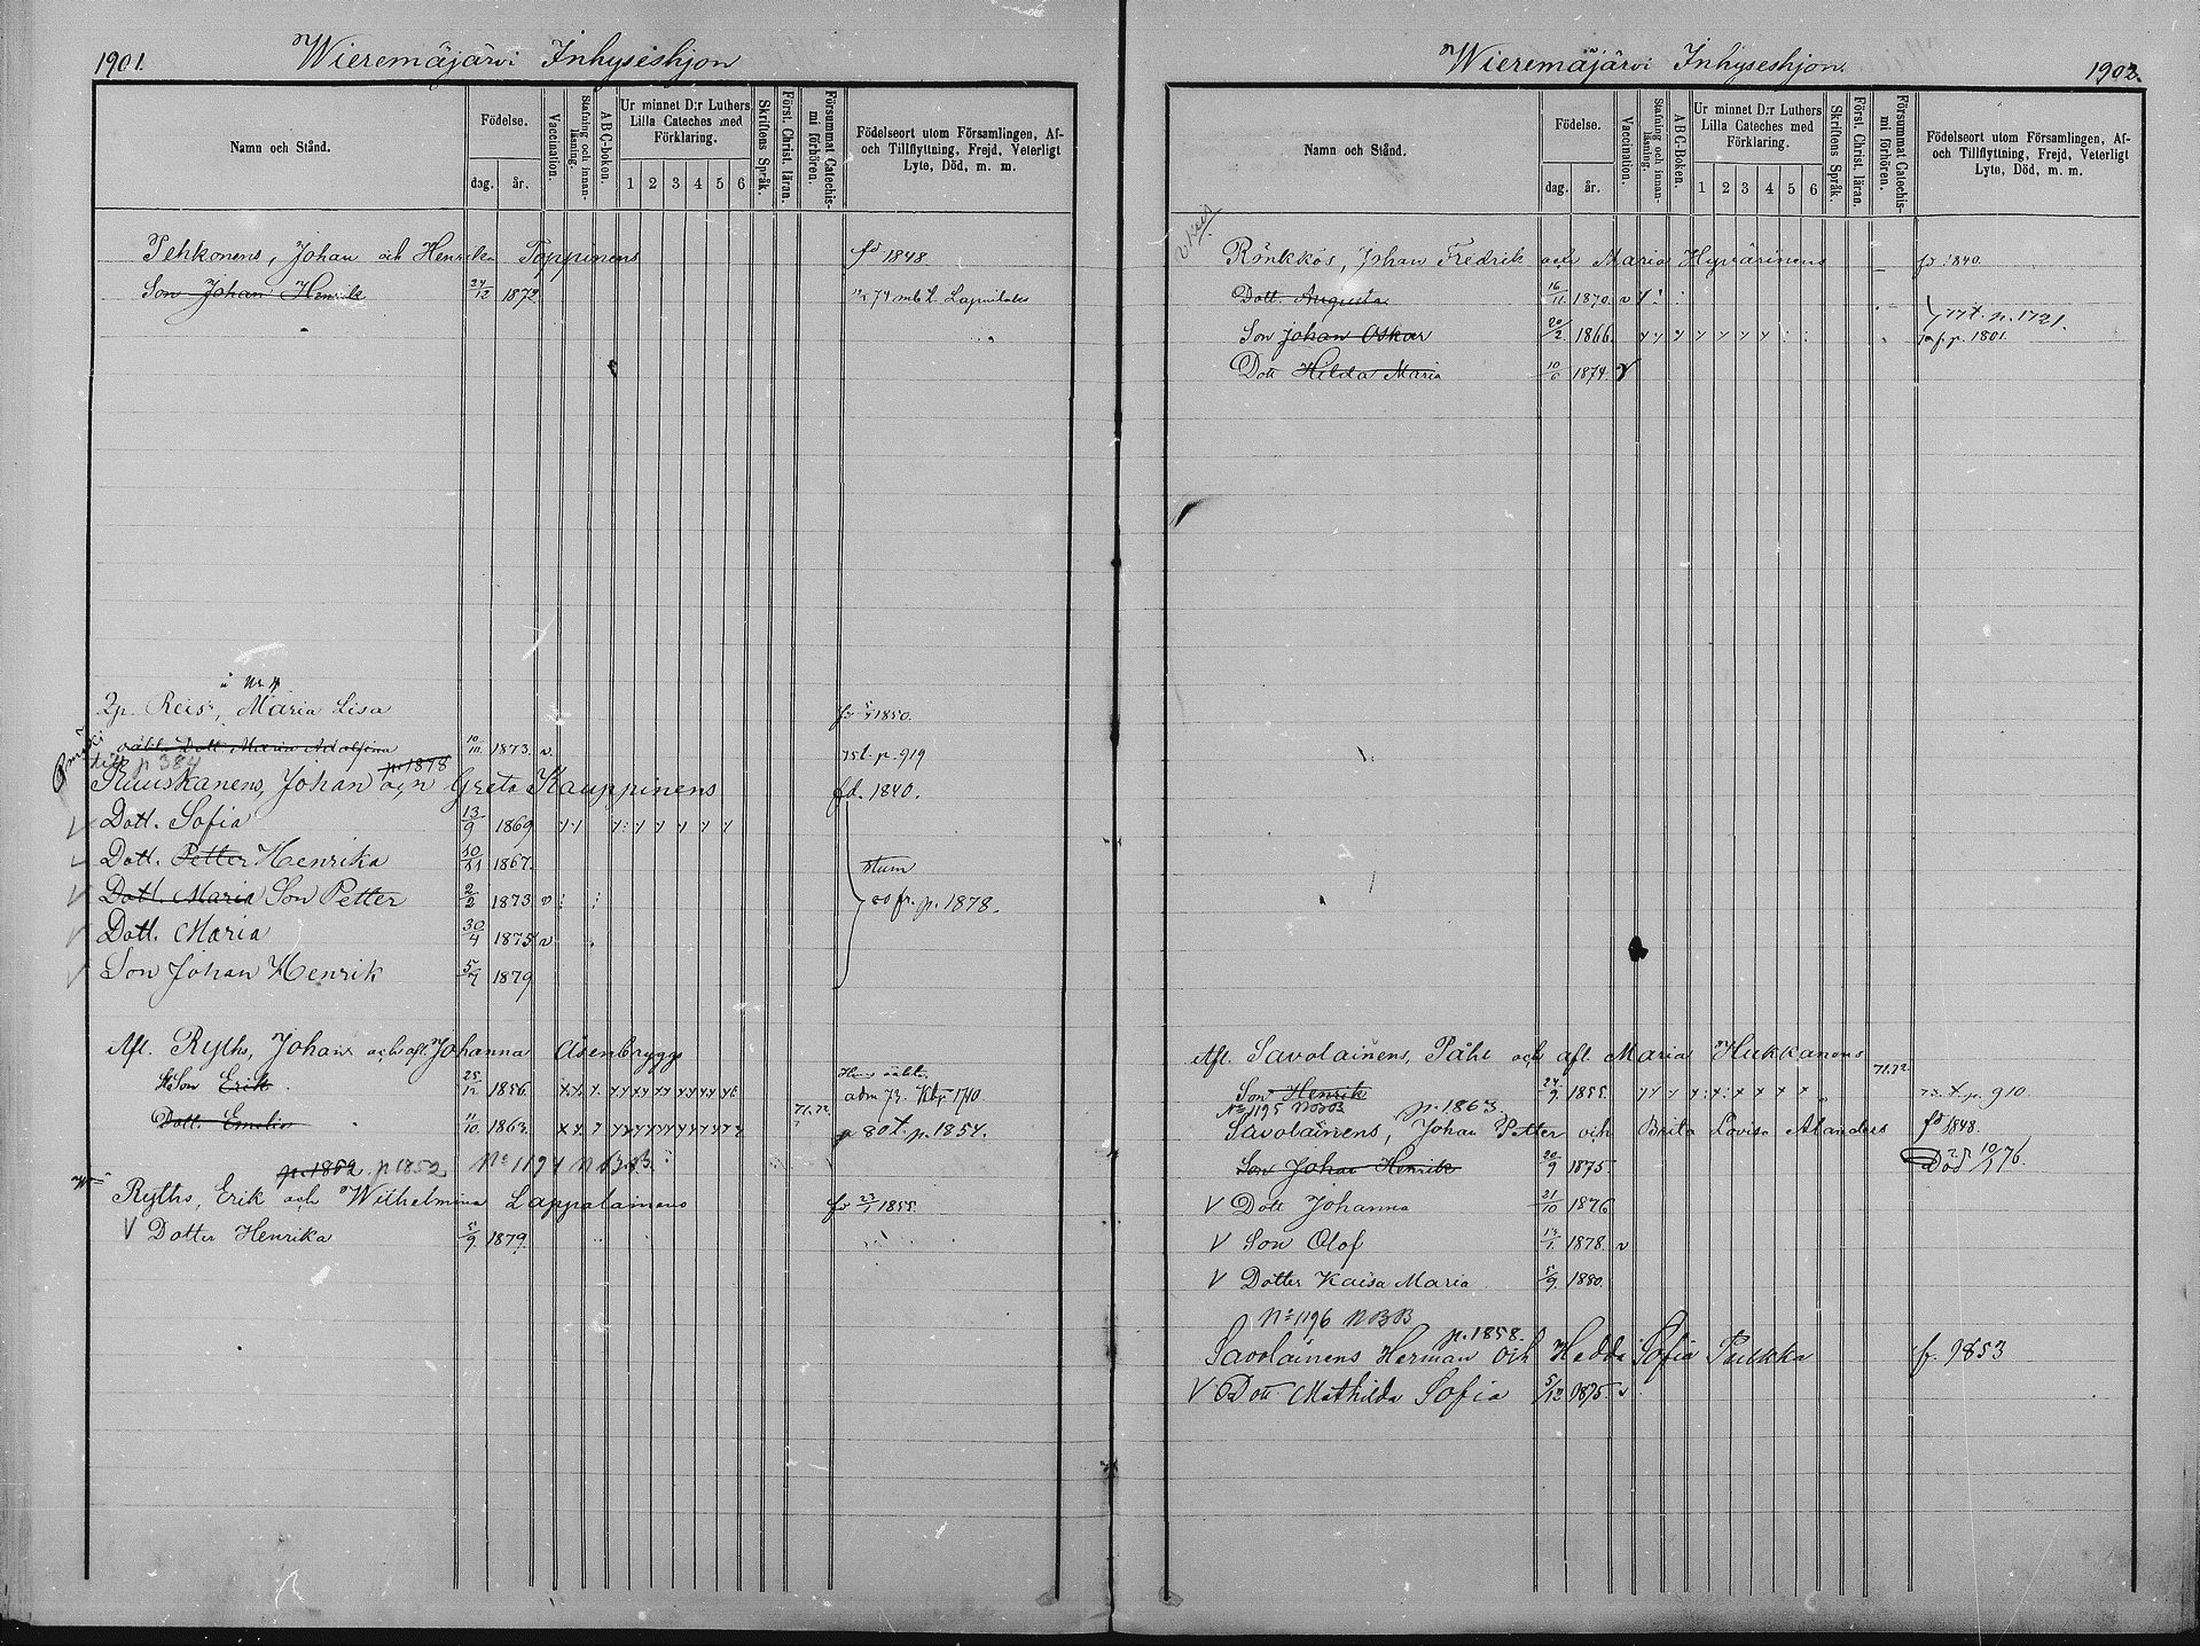 1901.
Wieremäjärvi Inhyseshjon
Namn och Stånd.
Födelse.
dag. år.
Vaccination.
Stafning och innan-läsning.
ABC-boken.
Ur minnet D:r Luthers Lilla Cateches med Förklaring.
1 2 3 4 5 6
Skriftens Språk.
Först. Christ. läran.
Försummat Catechis-mi förhören.
Födelseort utom Församlingen, Af- och Tillflyttning, Frejd, Veterligt Lyte, Död, m. m.
Pehkonens, Johan och Henrika Toppinens fd 1848.
Son Johan Henrik 24/12 1872
Reis, Maria Lisa 1850.
Dott. Maria Adolfina 10/10 1873. v. 75 t. p. 919
p 384 p. 1878
Ruuskanens, Johan och Greta Kauppinens fd. 1840.
V Dott. Sofia 13/9 1869
Dott. Petter Henrika 10/11 1867. stum
V Dott. Maria Son Petter 2/2 1873 v 80 fr. p. 1878.
V Dott. Maria 30/4 1875 v
V Son Johan Henrik 5/7 1879
Afl. Ryths, Johan och afl. Johanna Asenbryggs
Son Erik 25/12 1856. adm 73.
71.72.
Dott. Emelie 11/10 1863. 80 t. p. 1854.
p. 1852 p 1852 No 1194 N.B.B.
Ryths, Erik och Wilhelmina Lappalainens fd 23/1 1855.
V Dotter Henrika 5/9 1879.
Wieremäjärvi Inhyseshjon.
1902.
Namn och Stånd.
Födelse.
dag. år.
Vaccination.
Stafning och innan-läsning.
ABC-boken.
Ur minnet D:r Luthers Lilla Cateches med Förklaring.
1 2 3 4 5 6
Skriftens Språk.
Först. Christ. läran.
Försummat Catechis-mi förhören.
Födelseort utom Församlingen, Af- och Tillflyttning, Frejd, Veterligt Lyte, Död, m. m.
Rönkkös, Johan Fredrik och Maria Hyvärinens fd 1840.
Dott. Augusta 16/11 1870. v
77 t. p. 1721.
Son Johan Oskar 20/2 1866. p. 1801.
Dott Hilda Maria 10/6 1874. v
Afl. Savolainens, Påhl och afl Maria Hukkanens
71.72.
Son Henrik 24/9 1855. p. 910
No 1195 NBB p. 1863.
Savolainens, Johan Petter och Brita Lovisa Alanders fd 1848.
Son Johan Henrik 20/9 1875 Död 10/1 76.
V Dott Johanna 21/10 1876
V Son Olof 1878. v
V Dotter Kaisa Maria 5/9 1880.
No 1196 NBB
p. 1858.
Savolainens Herman och Hedda Sofia Pulkka f. 1853
V Dott Mathilda Sofia 5/12 1875. v